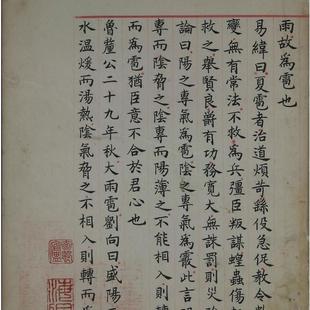 雨故爲雹也
易緯曰夏雹者治道煩苛繇役急促教令
變無有常法不救爲兵彊臣叛謀蝗蟲傷
救之舉賢良爵有功務寬大無誅罰則災
論曰陽之專氣爲雹陰之專氣爲霰此言
專而陰脅之陰專而陽薄之不能相入則轉
而爲雹猶臣意不合於君心也
魯釐公二十九年秋大雨雹劉向曰盛陽
水溫煖而湯熱陰氣脅之不相入則轉而